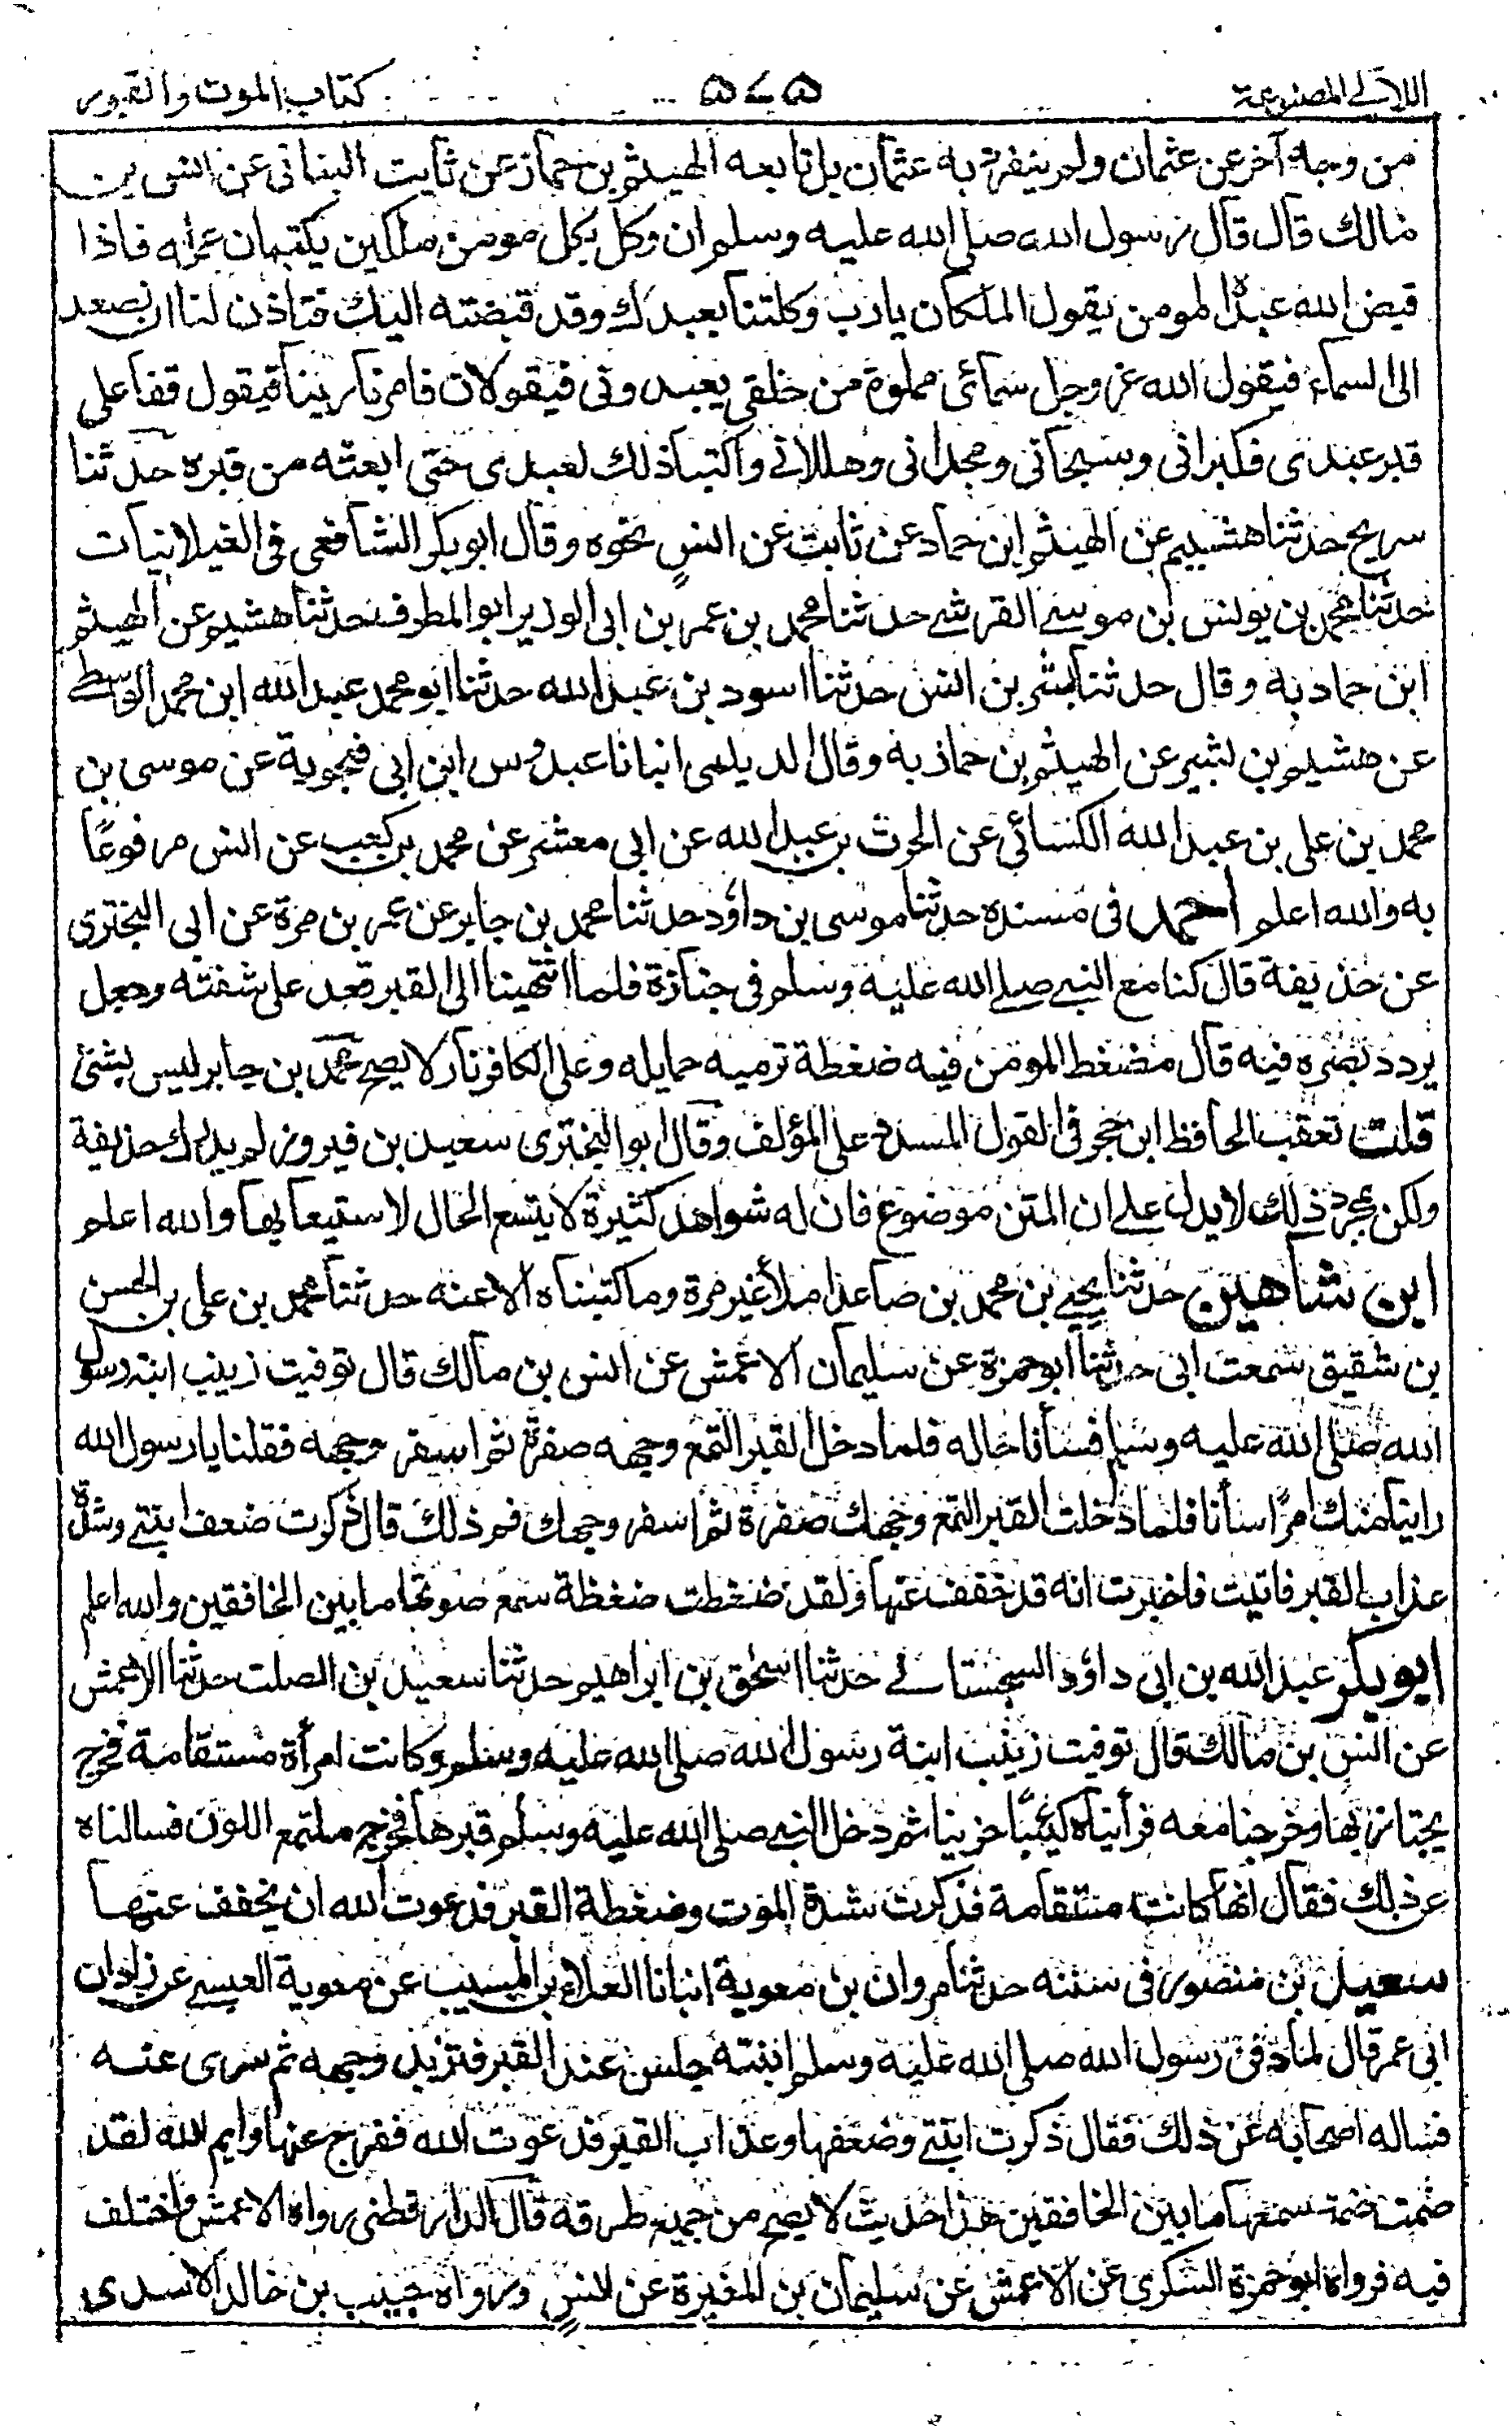 اللآلے المصنوعة ٥٧٥ كتاب الموت والقبور
من وجه آخر عن عثمان ولم ينفرد به عثمان بل تابعه الهيثم بن حماز عن ثابت البنانى عن انس بن
مالك قال قال رسول الله صلى الله عليه وسلم ان وكل بكل مومن ملكين يكتبان عمله فاذا
قبض الله عبده المومن يقول الملكان يارب وكلتنا بعبدك وقد قبضته اليك فتاذن لنا ان نصعد
الى السماء فيقول الله عز وجل سمائى مملوة من خلقى يعبدونى فيقولان فامرنا ربنا فيقول قفا على
قبر عبدى فكبرانى وسبحانى ومجدانى وهللانى واكتبا ذلك لعبدى حتى ابعثه من قبره حدثنا
سريح حدثنا هشيم عن الهيثم ابن حماد عن ثابت عن انس نحوه وقال ابو بكر الشافعى فى الغيلانيات
حدثنا محمد بن يونس بن موسے القرشے حدثنا محمد بن عمر بن ابى الوزير ابو المطرف حدثنا هشيم عن الهيثم
ابن حماد به وقال حدثنا بشر بن انس حدثنا اسود بن عبد الله حدثنا ابو محمد عبد الله ابن محمد الواسطے
عن هشيم بن بشير عن الهيثم بن حماذ به وقال الديلمى انبانا عبدوس ابن ابى فنجوية عن موسى بن
محمد بن على بن عبد الله الكسائى عن الحرث بن عبد الله عن ابى معشر عن محمد بن كعب عن انس مرفوعًا
به والله اعلم احمد فى مسنده حدثنا موسى بن داؤد حدثنا محمد بن جابر عن عمر بن مرة عن ابى البخترى
عن حذيفة قال كنا مع النبے صلے الله عليه وسلم فى جنازة فلما انتهينا الى القبر قعد على شفته وجعل
يردد بصره فيه قال مضغط المومن فيه ضغطة ترميه حمايله وعلى الكافر نار لا يصح محمد بن جابر ليس بشئ
قلت تعقب الحافظ ابن حجر فى القول المسدد على المؤلف وقال ابو البخترى سعيد بن فيروز لم يدرك حذيفة
ولكن مجرد ذلك لا يدل على ان المتن موضوع فان له شواهد كثيرة لا يتسع الحال لاستيعابها والله اعلم
ابن شاهين حدثنا يحيے بن محمد بن صاعد املأ غير مرة وما كتبناه الا عنه حدثنا محمد بن على بن الحسن
بن شقيق سمعت ابى حدثنا ابو حمزة عن سليمان الاعمش عن انس بن مالك قال توفيت زينب ابنة رسول
الله صلى الله عليه وسلم فسأنا حاله فلما دخل القبر التمع وجهه صفرة ثم اسفر وجهه فقلنا يا رسول الله
راينا منك امرًا سأنا فلما دخلت القبر التمع وجهك صفرة ثم اسفر وجهك فمم ذلك قال ذكرت ضعف ابنتے وشدة
عذاب القبر فاتيت فاخبرت انه قد خفف عنها ولقد ضغطت ضغطة سمع صوتها ما بين الخافقين والله اعلم
ابو بكر عبد الله بن ابى داؤد السجستانے حدثنا اسحٰق بن ابراهيم حدثنا سعيد بن الصلت حدثنا الاعمش
عن انس بن مالك قال توفيت زينب ابنة رسول الله صلى الله عليه وسلم وكانت امرأة مستقامة فخرج
بجنازتها وخرجنا معه فرأيناه كئيبًا حزينا ثم دخل النبے صلى الله عليه وسلم قبرها فخرج ملتمع اللون فسالناه
عن ذلك فقال انها كانت مستقامة فذكرت شدة الموت وضغطة القبر فدعوت الله ان يخفف عنها
سعيد بن منصور فى سننه حدثنا مروان بن معوية انبانا العلاء بن المسيب عن معوية العبسے عن زاذان
ابى عمر قال لما دفن رسول الله صلى الله عليه وسلم ابنته جلس عند القبر فتربد وجهه ثم سرى عنه
فساله اصحابه عن ذلك فقال ذكرت ابنتے وضعفها وعذاب القبر فدعوت الله ففرج عنها وايم الله لقد
ضمت ضمة سمعها ما بين الخافقين هذا حديث لا يصح من جميع طرقه قال الدارقطنى رواه الاعمش واختلف
فيه فرواه ابو حمزة السكرى عن الاعمش عن سليمان بن المغيرة عن انس ورواه حبيب بن خالد الاسدى